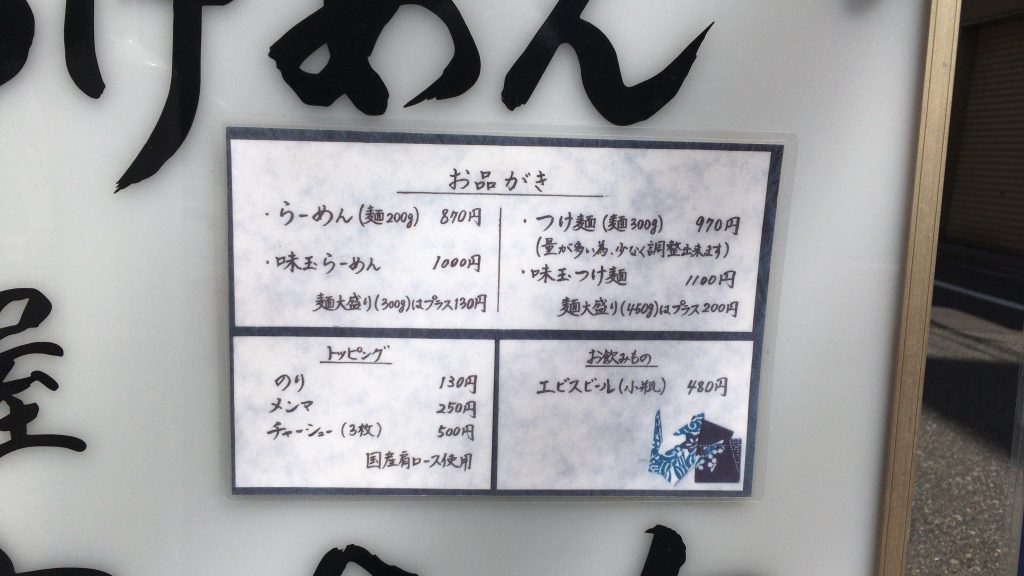 けめん
お品がき
・らーめん(麺200g) 870円
・味玉らーめん 1000円
麺大盛り(300g)はプラス130円
・つけ麺(麺300g) 970円
(量が多い為、少なく調整出来ます)
・味玉つけ麺 1100円
麺大盛り(450g)はプラス200円
トッピング
のり 130円
メンマ 250円
チャーシュー(3枚) 500円
国産肩ロース使用
お飲みもの
エビスビール(小瓶) 480円
屋